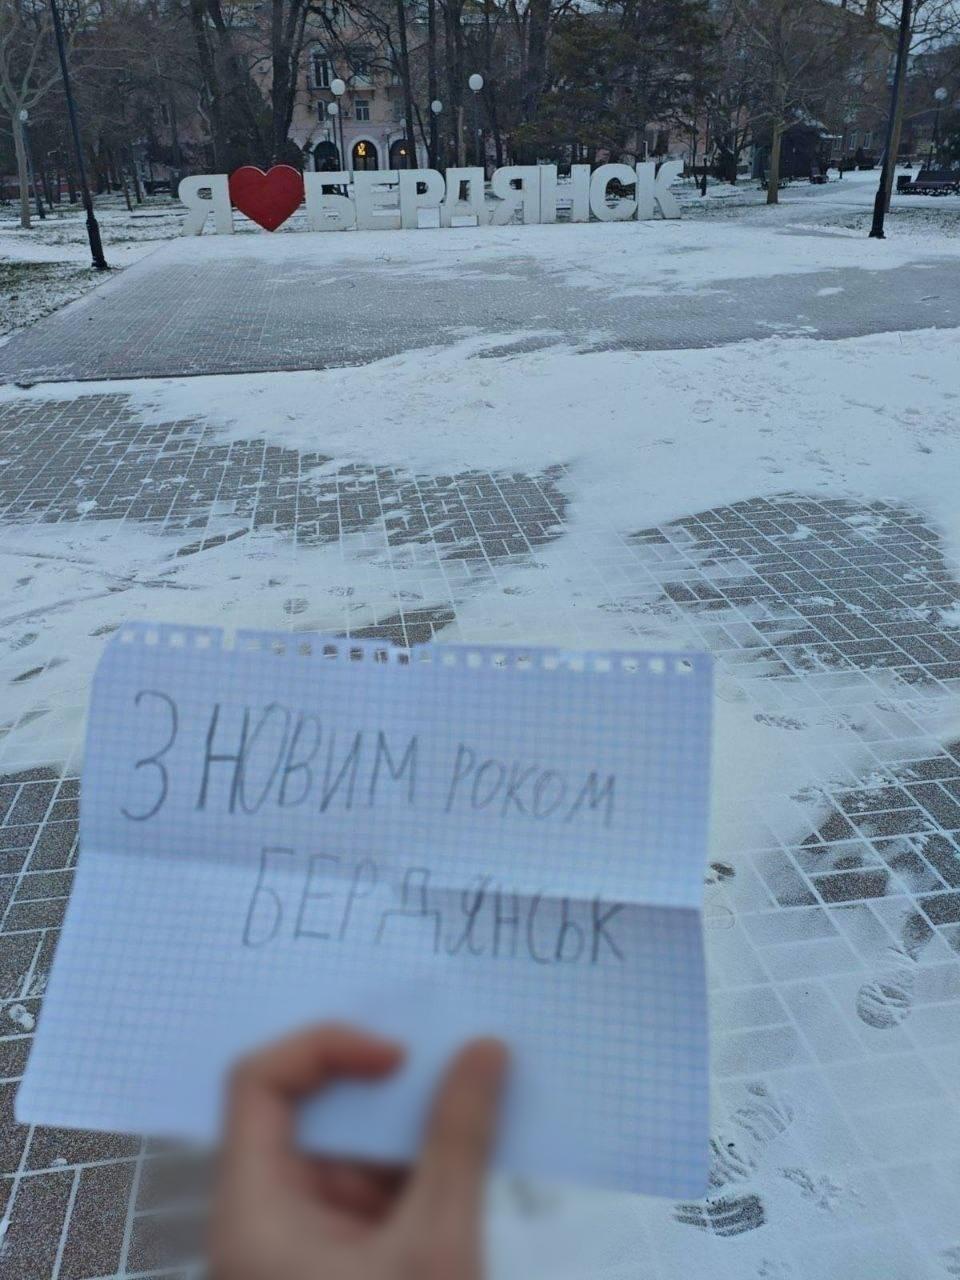 Я ❤ БЕРДЯНСК
З НОВИМ РОКОМ
БЕРДЯНСЬК